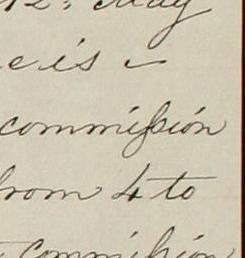 12. May
e is
commission
from 4 to
commission